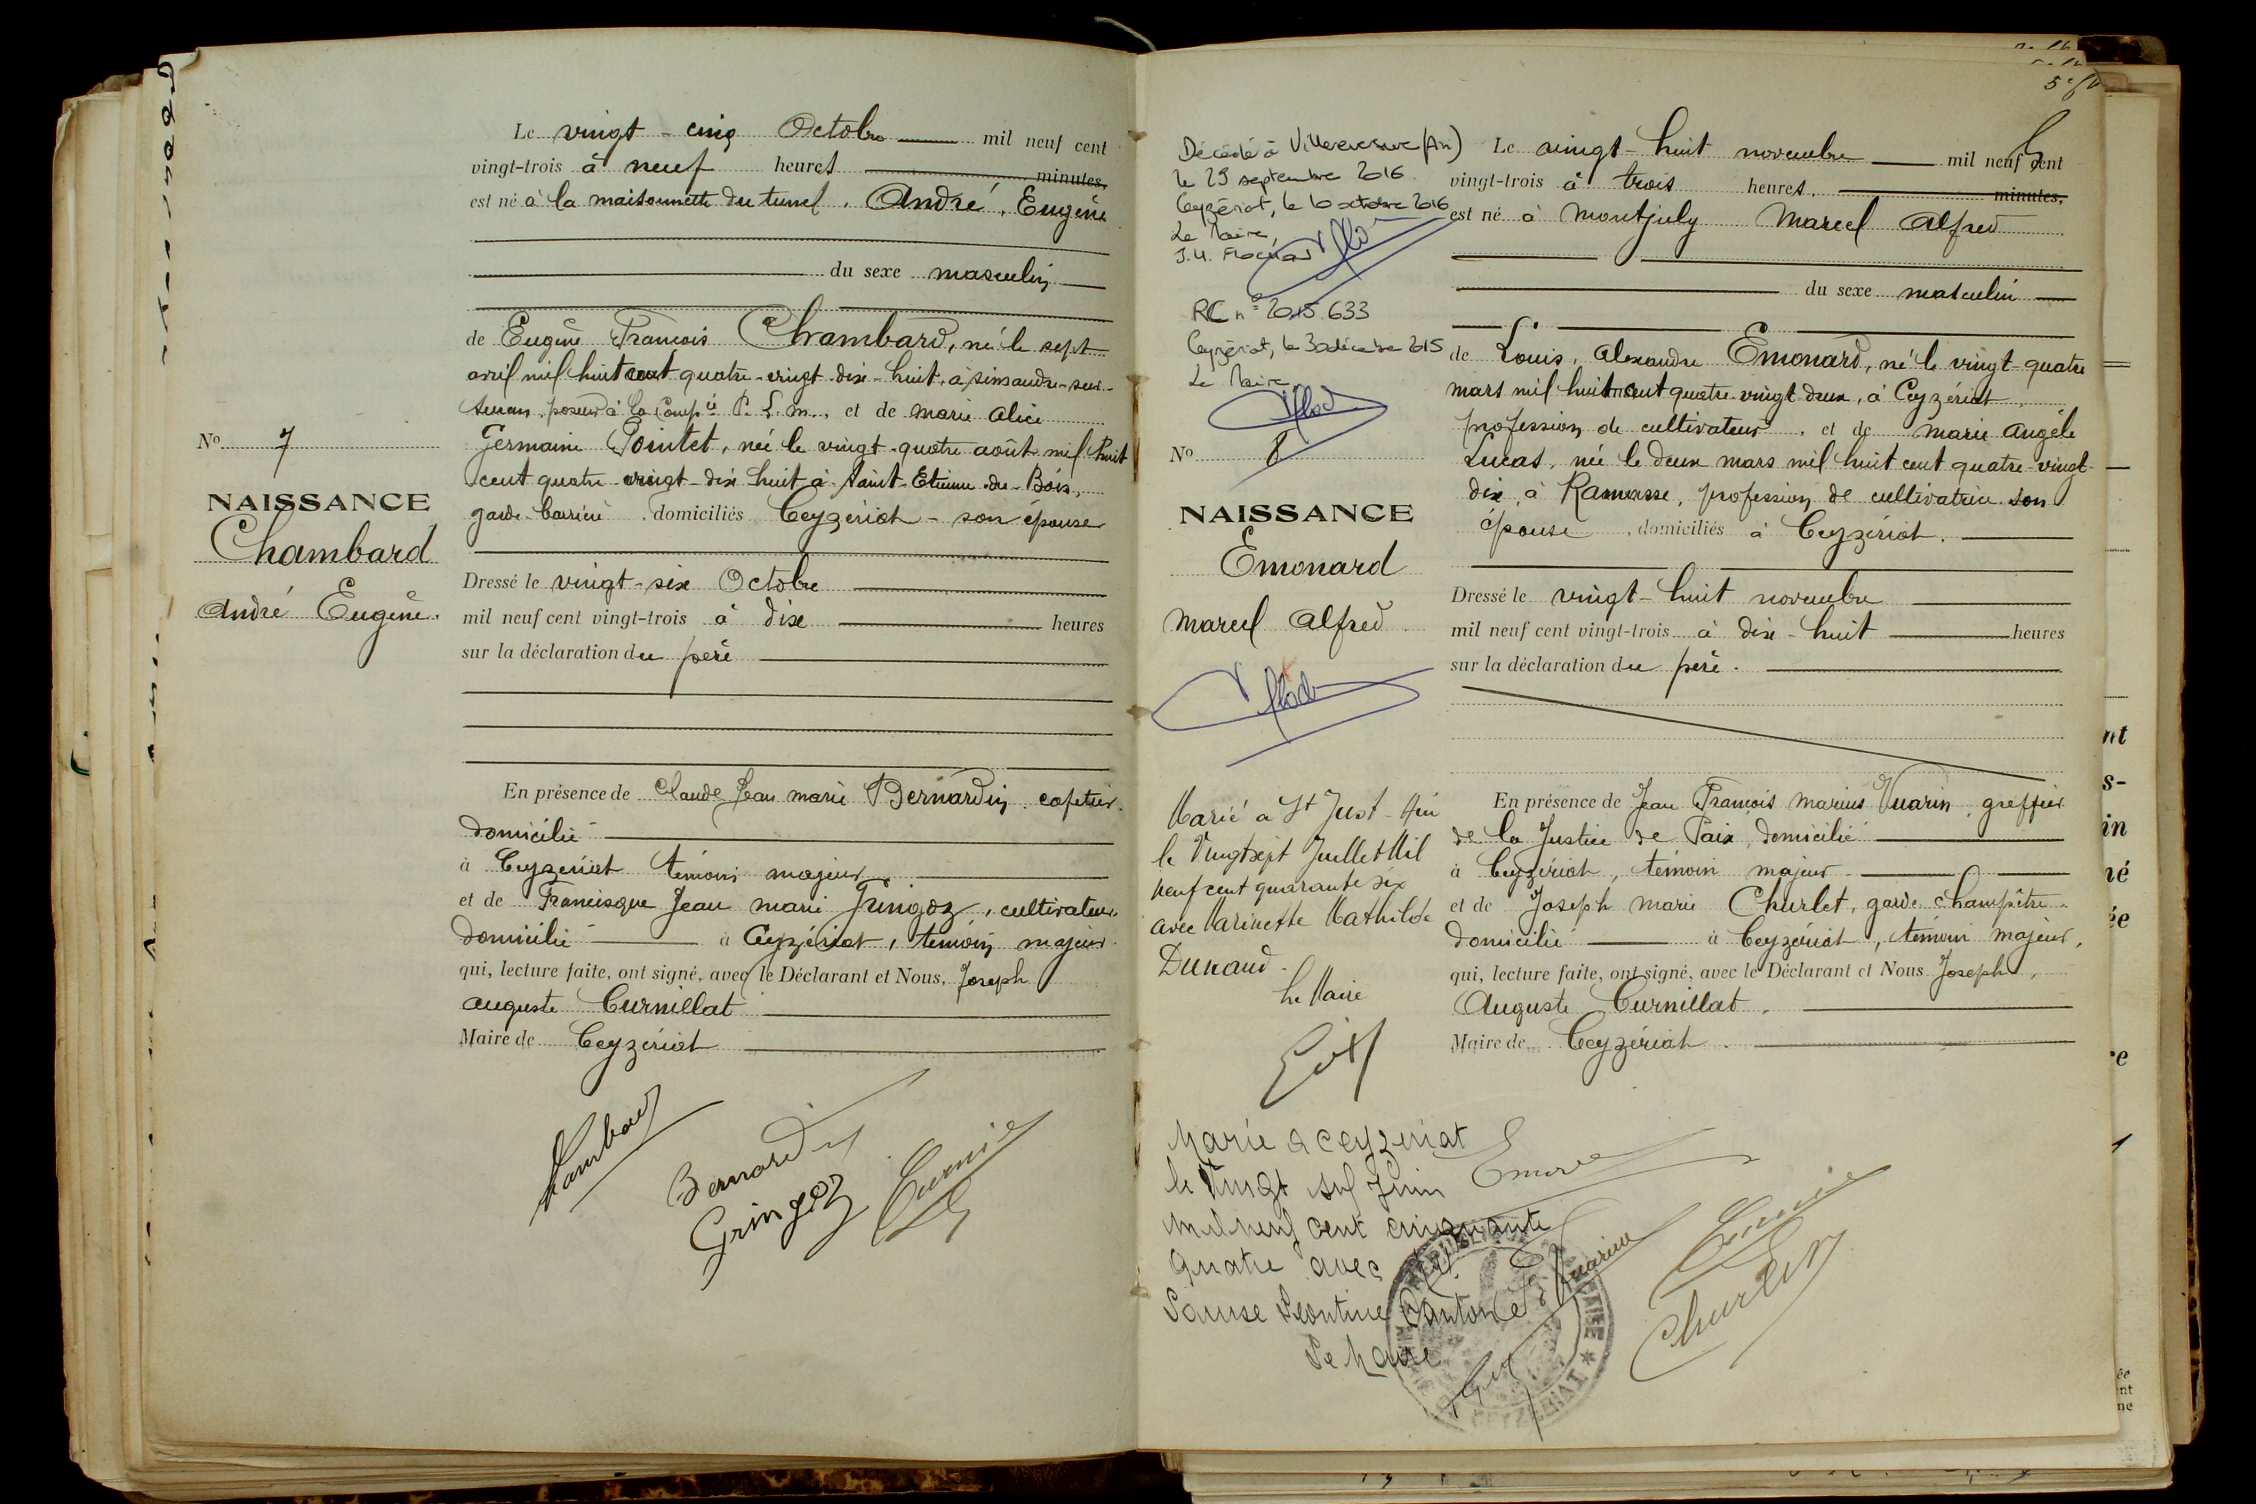 Le vingt-cinq Octobre mil neuf cent
vingt-trois à neuf heures minutes,
est né à la maisonnette du tunnel, André, Eugène
du sexe masculin
de Eugène François Chambard, né le sept
avril mil huit cent quatre-vingt-dix-huit, à Simandre-sur-
Suran, poseur à la Compie P. L. M., et de Marie Alice
Germaine Pointet, née le vingt-quatre août mil huit
cent quatre-vingt-dix huit à Saint-Etienne-du-Bois,
garde-barrière, domiciliés Ceyzériat - son épouse
Dressé le vingt-six Octobre
mil neuf cent vingt-trois à dix heures
sur la déclaration du père
No 7
NAISSANCE
Chambard
André Eugène.
En présence de Claude Jean Marie Bernardin, cafetier
domicilié
à Ceyzériat témoin majeur
et de Francisque Jean Marie Gringoz, cultivateur
domicilié à Ceyzériat, témoin majeur
qui, lecture faite, ont signé, avec le Déclarant et Nous, Joseph
Auguste Curnillat
Maire de Ceyzériat
Chambard
Bernardin
Gringoz
5e
Décédé à Villereversure (Ain)
le 29 septembre 2016
Ceyzériat, le 10 octobre 2016
Le Maire,
RC n° 2015.633
Ceyzériat, le 30 décembre 2015
Le Maire,
No 8
NAISSANCE
Emonard
Marcel Alfred
Marié à St Just - Ain
le Vingt sept Juillet Mil
neuf cent quarante six
avec Marinette Mathilde
Dunand.
Le Maire
Marié à Ceyzériat
le Vingt Juin
mil neuf cent cinquante
quatre avec
Léontine
Le Maire
Le vingt-huit novembre mil neuf cent
vingt-trois à trois heures, minutes,
est né à Montjuly Marcel Alfred
du sexe masculin
de Louis, Alexandre Emonard, né le vingt-quatre
mars mil huit cent quatre-vingt deux, à Ceyzériat,
profession de cultivateur, et de Marie Angèle
Lucas, née le deux mars mil huit cent quatre-vingt-
dix, à Ramasse, profession de cultivatrice son
épouse, domiciliés à Ceyzériat.
Dressé le vingt-huit novembre
mil neuf cent vingt-trois à dix-huit heures
sur la déclaration du père.
En présence de Jean François Marius Vuarin, greffier
de la Justice de Paix, domicilié
à Ceyzériat, témoin majeur
et de Joseph Marie Churlet, garde-champêtre
domicilié à Ceyzériat, témoin majeur,
qui, lecture faite, ont signé, avec le Déclarant et Nous Joseph
Auguste Curnillat,
Maire de Ceyzériat.
Vuarin
Churlet
CEYZERIAT